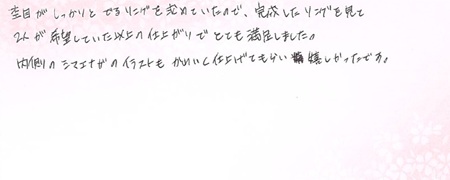 杢目がしっかりとでるリングを求めていたので、完成したリングを見て
2人が希望していた以上の仕上がりでとても満足しました。
内側のシマエナガのイラストもかわいく仕上げてもらい嬉しかったです。